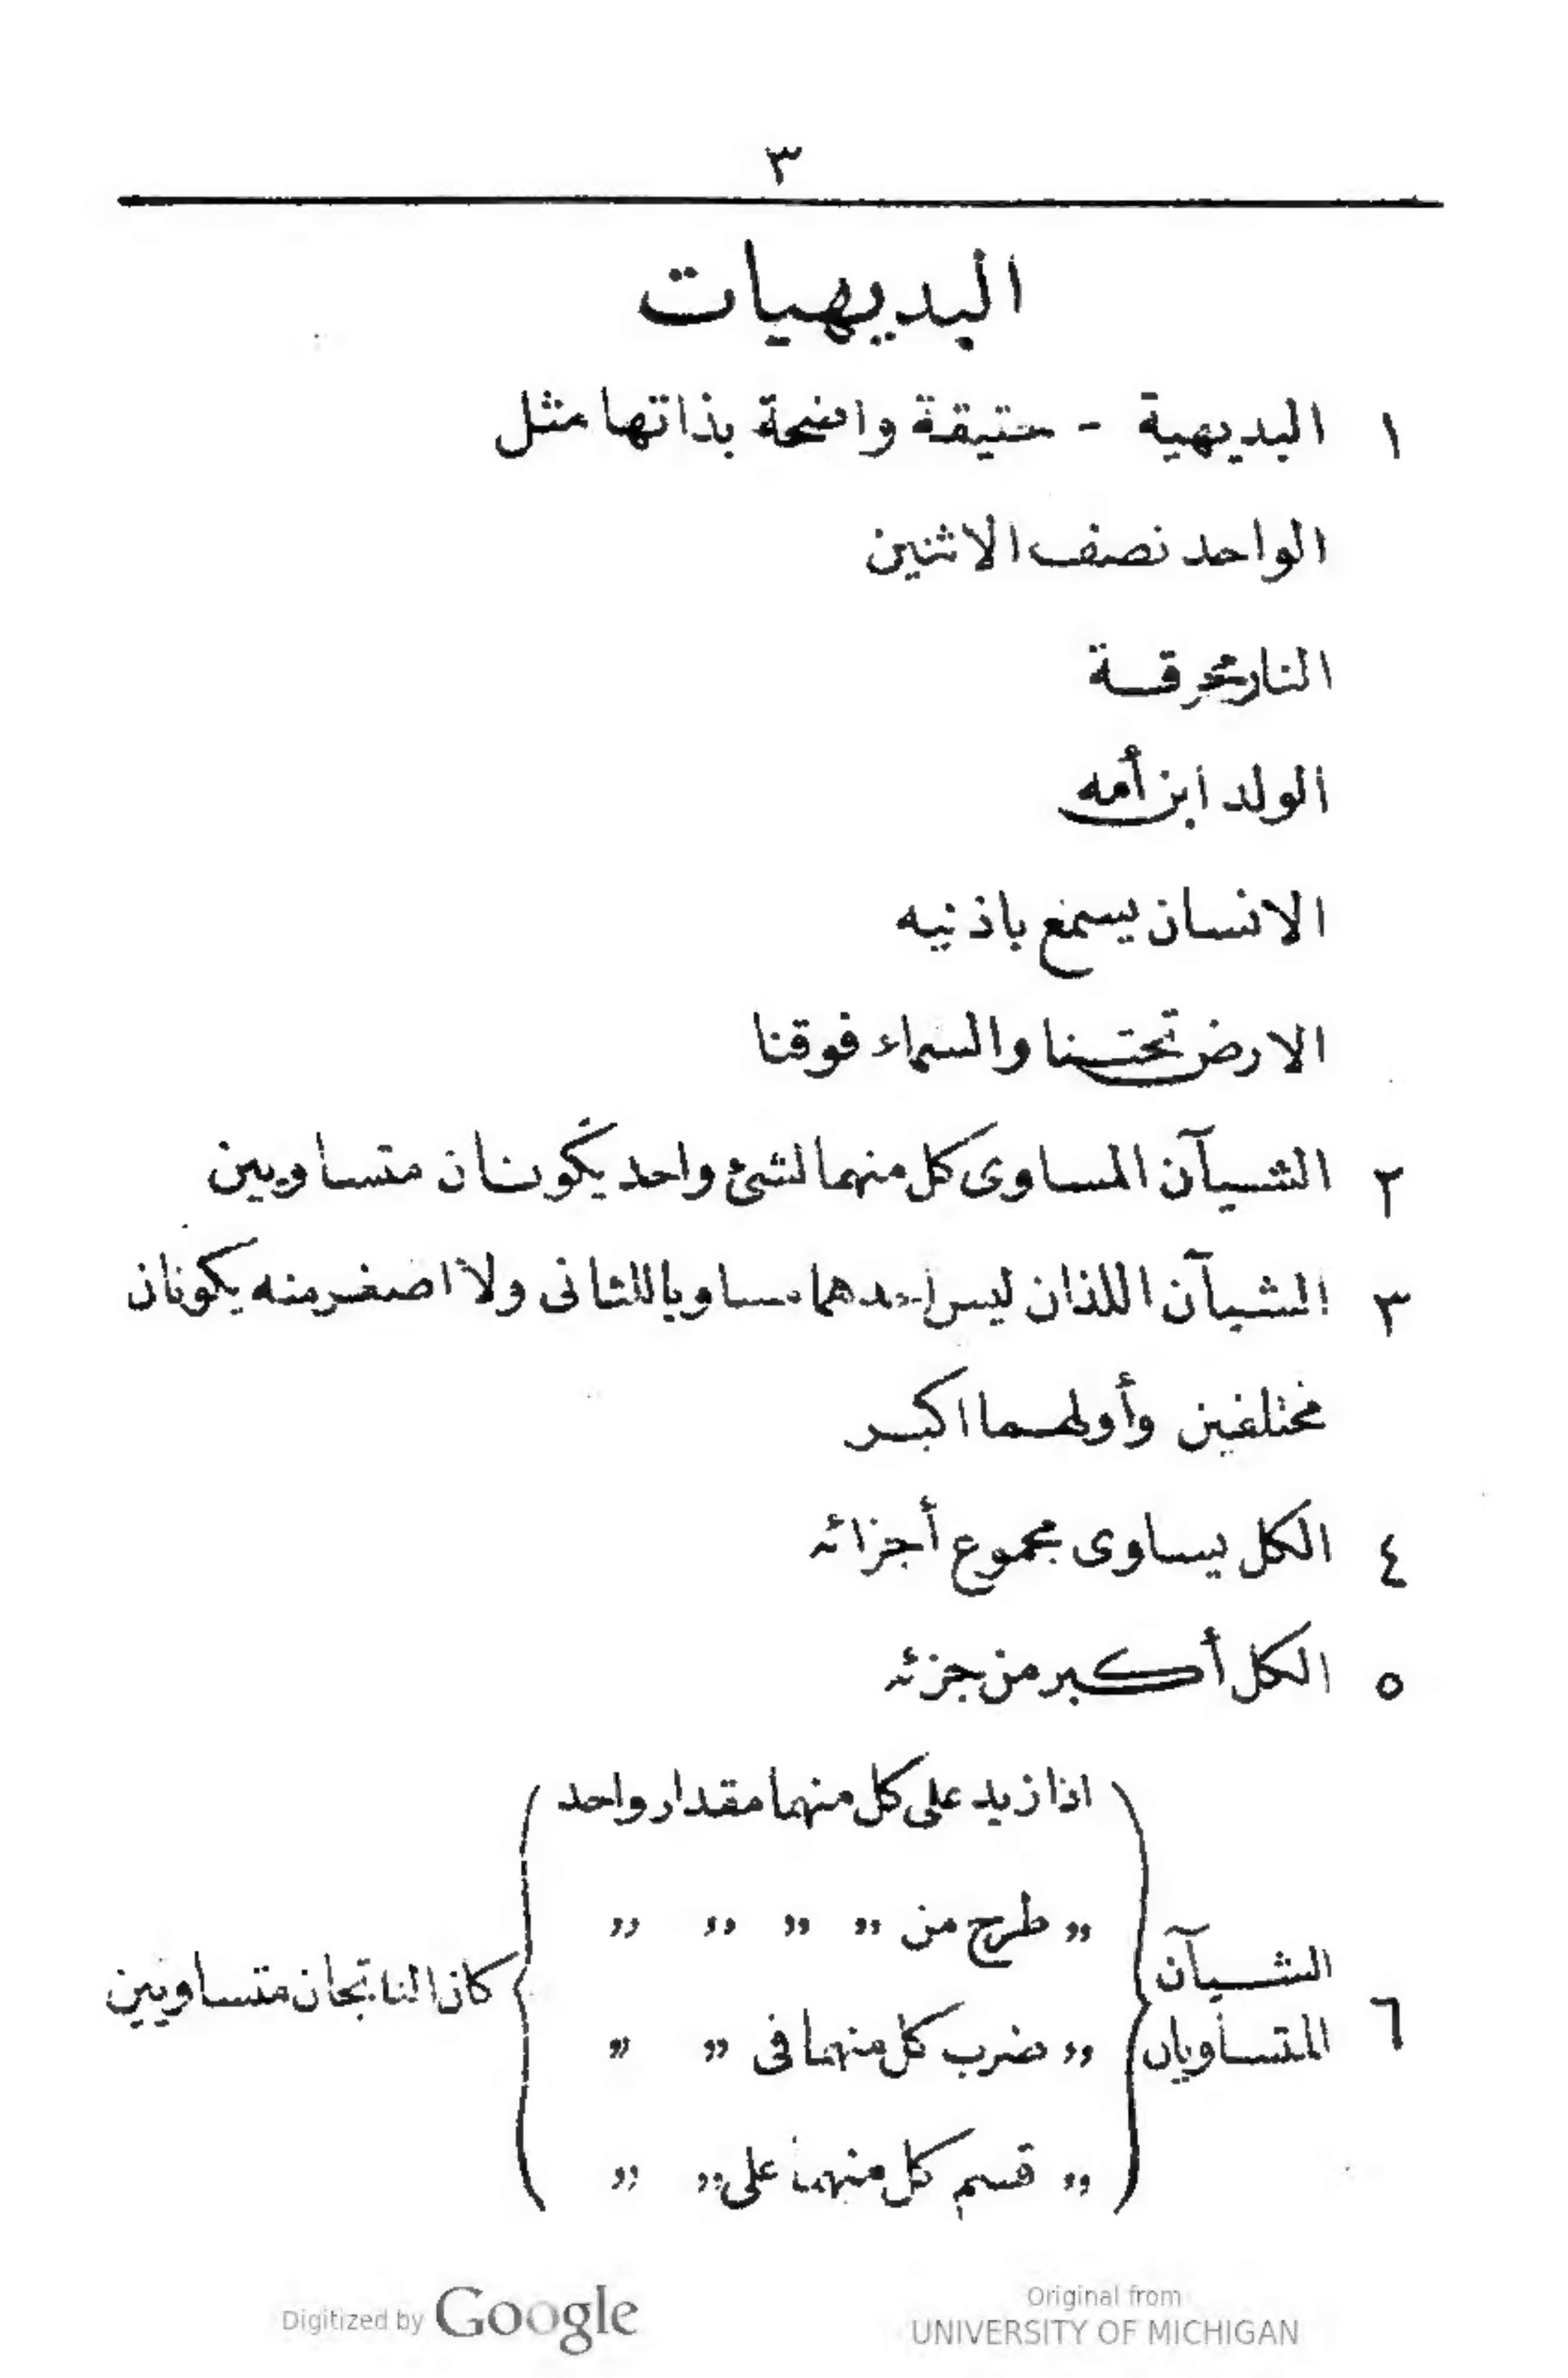 ٣
البديهيات
١ البديهية - حقيقة واضحة بذاتها مثل
الواحد نصف الاثنين
النار محرقة
الولد ابن أمه
الانسان يسمع باذنيه
الارض تحتنا والسماء فوقنا
٢ الشيآن المساوى كل منهما لشئ واحد يكونان متساويين
٣ الشيآن اللذان ليس احدهما مساويا للثانى ولا اصغر منه يكونان
مختلفين وأولهما اكبر
٤ الكل يساوى مجموع أجزائه
٥ الكل أكبر من جزئه
٦ الشيآن
المتساويان
اذا زيد على كل منهما مقدار واحد
„ طرح من „ „ „ „
„ ضرب كل منهما فى „ „
„ قسم كل منهما على „ „
كان الناتجان متساويين
Digitized by Google
Original from
UNIVERSITY OF MICHIGAN